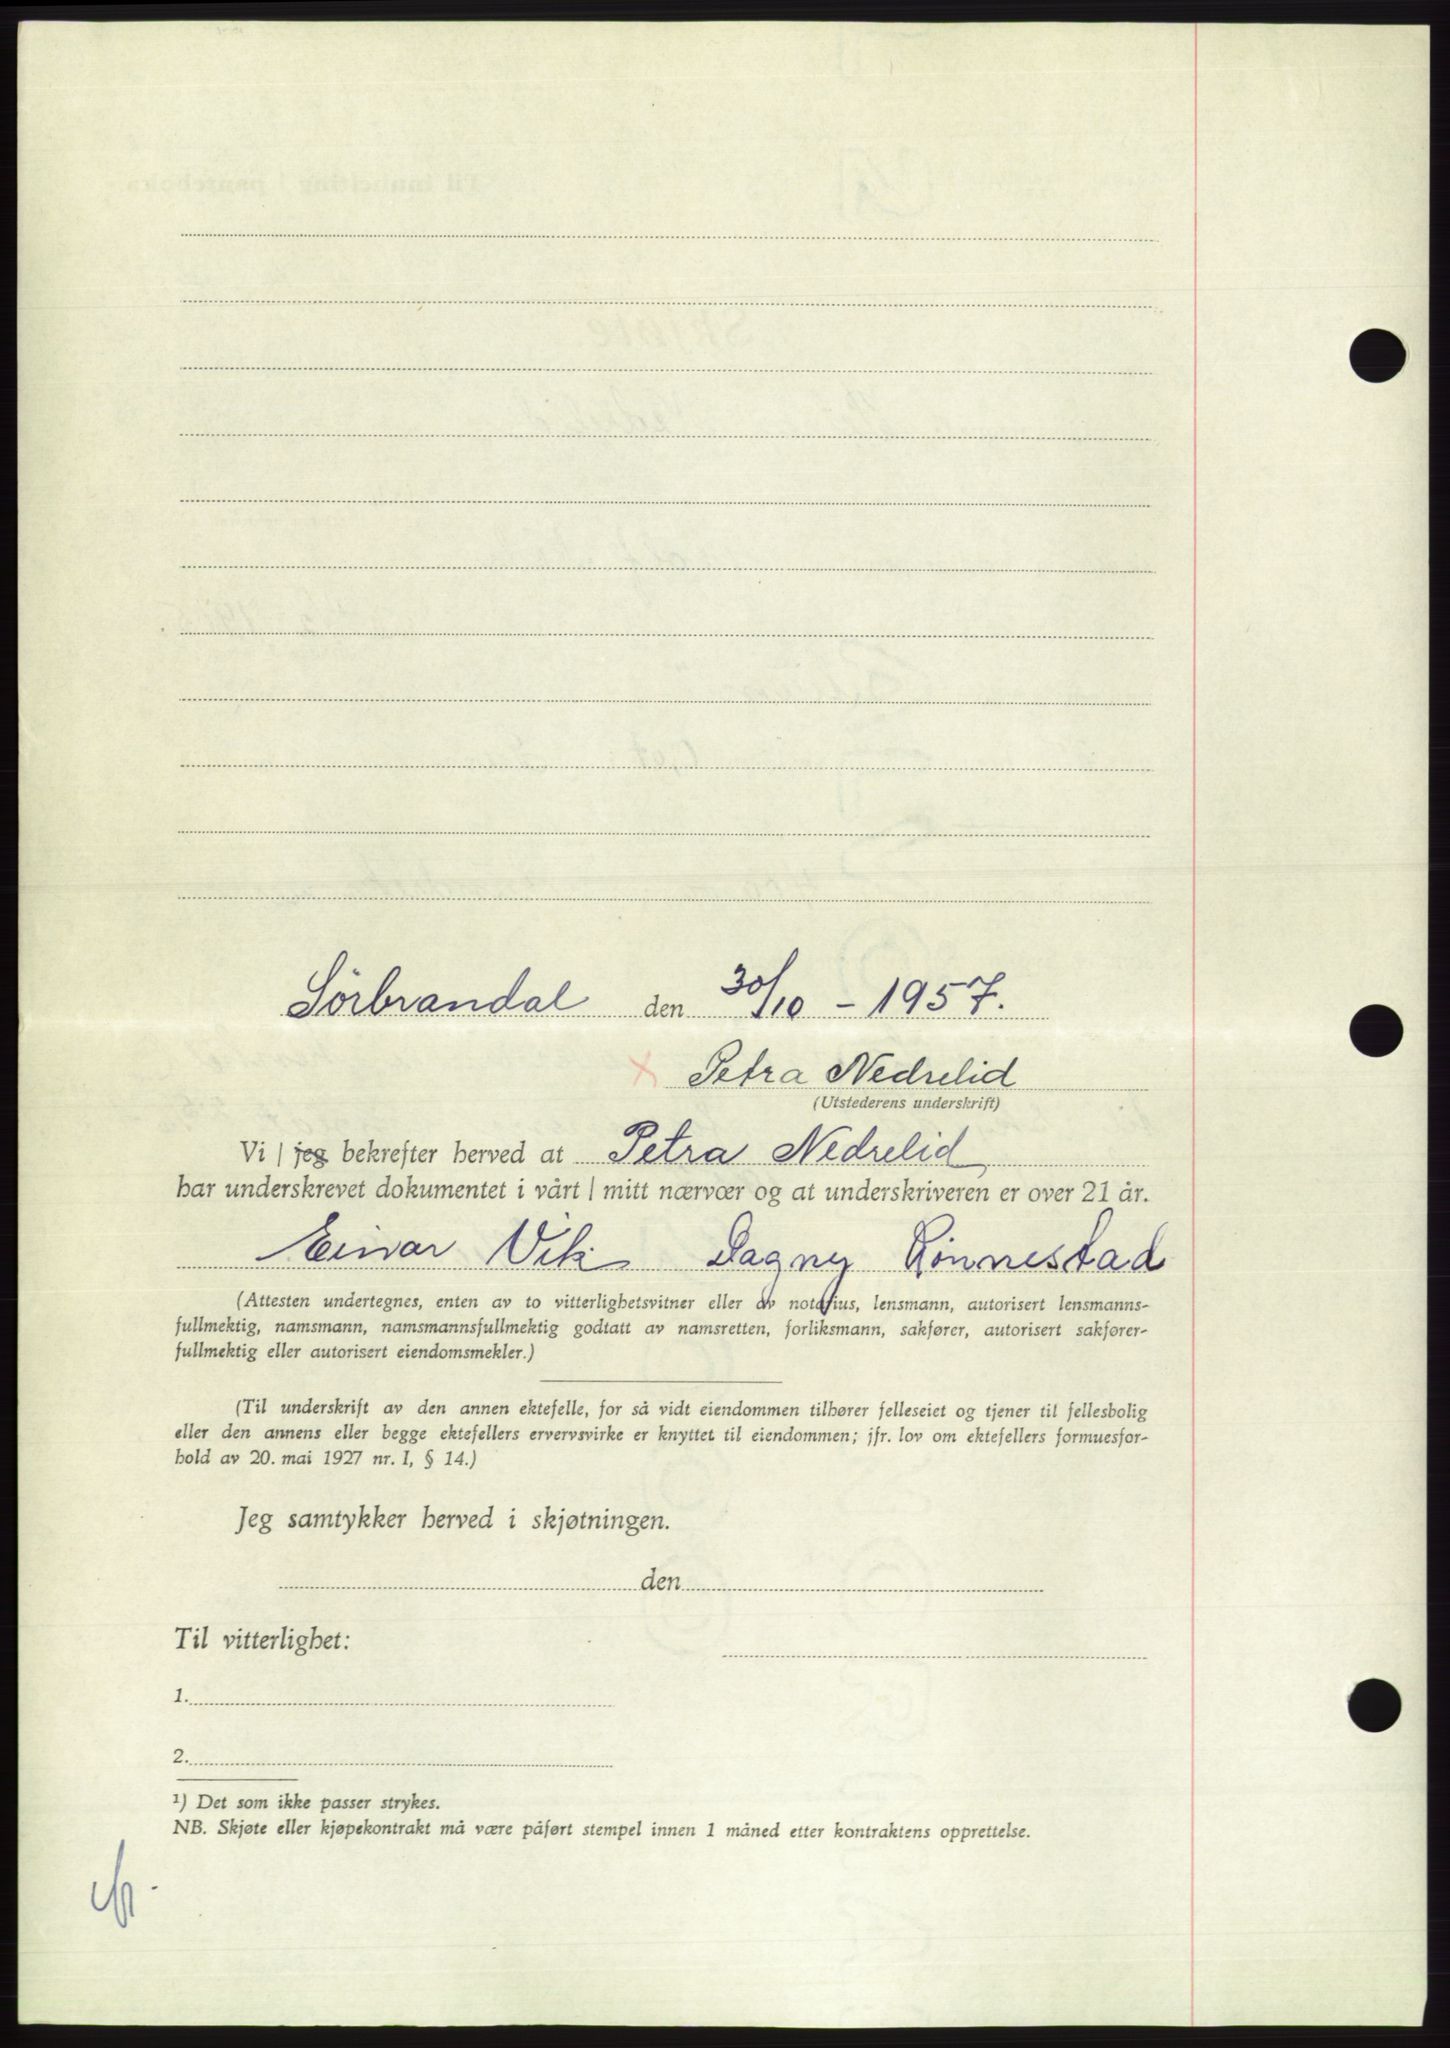 Sörbrandal den 30/10 - 1957.
x Petra Nedrelid
(Utstederens underskrift)
Vi / jeg bekrefter herved at Petra Nedrelid
har underskrevet dokumentet i vårt / mitt nærvær og at underskriveren er over 21 år.
Einar Vik Dagny Rönnestad
(Attesten undertegnes, enten av to vitterlighetsvitner eller av notarius, lensmann, autorisert lensmanns-
fullmektig, namsmann, namsmannsfullmektig godtatt av namsretten, forliksmann, sakfører, autorisert sakfører-
fullmektig eller autorisert eiendomsmekler.)
(Til underskrift av den annen ektefelle, for så vidt eiendommen tilhører felleseiet og tjener til fellesbolig
eller den annens eller begge ektefellers ervervsvirke er knyttet til eiendommen; jfr. lov om ektefellers formuesfor-
hold av 20. mai 1927 nr. I, § 14.)
Jeg samtykker herved i skjøtningen.
den
Til vitterlighet:
1.
2.
¹) Det som ikke passer strykes.
NB. Skjøte eller kjøpekontrakt må være påført stempel innen 1 måned etter kontraktens opprettelse.